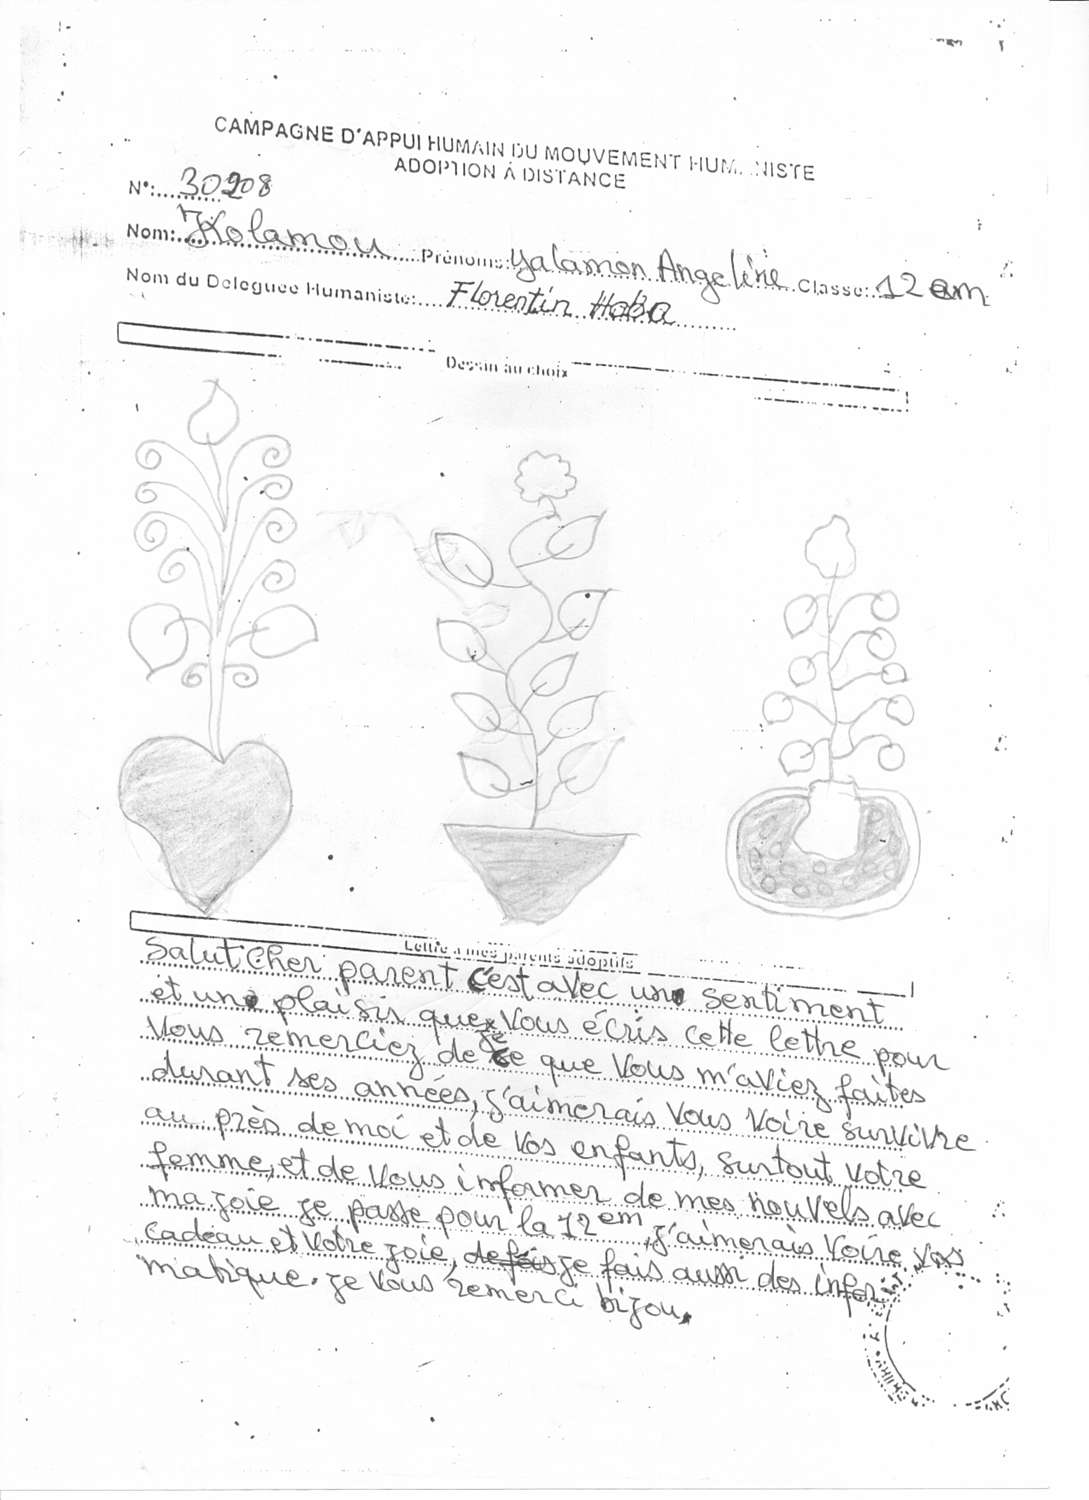 CAMPAGNE D'APPUI HUMAIN DU MOUVEMENT HUMANISTE
ADOPTION A DISTANCE
N°:..........30208
Nom:.Kolamou....Prénoms:yalamon Angeline Classe:.12em
Nom du Deleguee Humaniste:....Florentin Haba........
Dessin au choix
Lettre a mes parents adoptifs
Salut Cher parent c'est avec un sentiment
et un plaisir que vous écris cette lettre pour
vous remerciez de ce que vous m'aviez faites
durant ses années, j'aimerais vous voire survivre
au près de moi et de vos enfants, surtout votre
femme, et de vous informer de mes nouvels avec
ma joie je passe pour la 12em, j'aimerais voire vos
cadeau et votre joie, je fais aussi des infor-
matique. je vous remerci bijou.